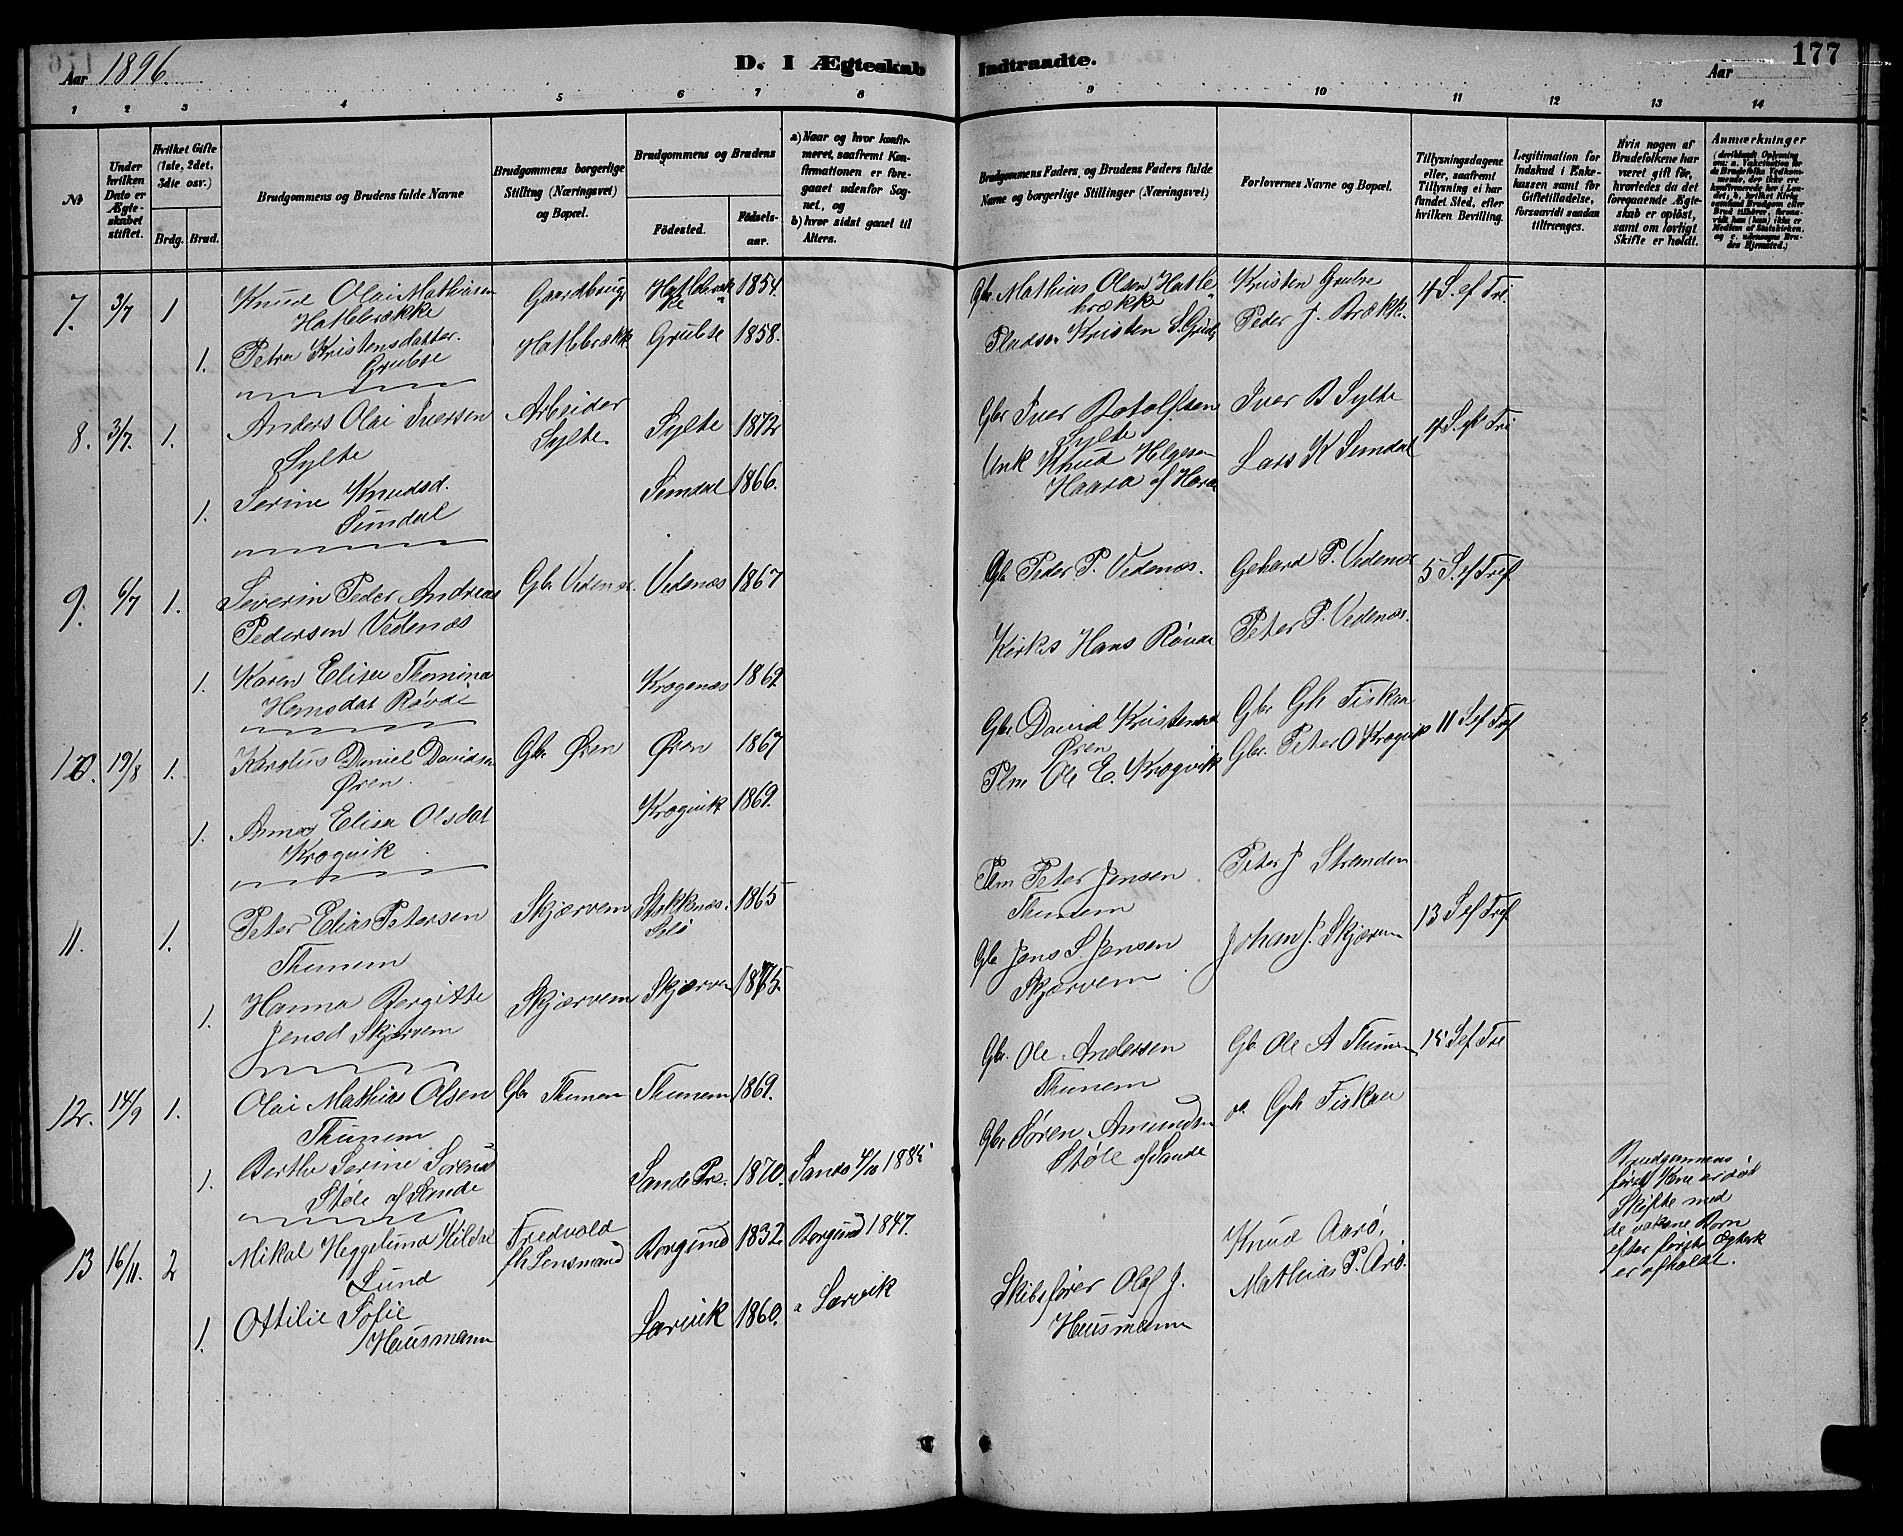 Aar 1896.
D. I Ægteskab
Indtraadte.
Aar
177
1 2 3 4 5 6 7 8 9 10 11 12 13 14
No
Under hvilken Dato er Ægteskabet stiftet.
Hvilket Gifte (1ste, 2det, 3die osv.)
Brdg. Brud.
Brudgommens og Brudens fulde Navne
Brudgommens borgerlige Stilling (Næringsvei) og Bopæl.
Brudgommens og Brudens
Fødested.
Fødselsaar.
a) Naar og hvor konfirmeret, saafremt Konfirmationen er foregaaet udenfor Sognet, og
b) hvor sidst gaaet til Alters.
Brudgommens Faders, og Brudens Faders fulde Navne og borgerlige Stillinger (Næringsvei)
Forlovernes Navne og Bopæl.
Tillysningsdagene eller, saafremt Tillysning ei har fundet Sted, efter hvilken Bevilling.
Legitimation for Indskud i Enkekassen samt for Giftetilladelse, forsaavidt saadan tiltrænges.
Hvis nogen af Brudefolkene har været gift før, hvorledes da det foregaaende Ægteskab er opløst, samt om lovligt Skifte er holdt.
Anmærkninger
7. 3/7 1
Knud Olai Mathiasen
Hatlebrække
Gaardbruger
Hatlebræk
ke
1854.
Gbr. Mathias Olsen Hatle
brække
Kristen Grubse
4 S. ef Tri
1.
Petra Kristensdatter.
Grubse
Hatlebrække
Grubse
1858.
Pladsm. Kristen S.
Peder J. Brække.
8. 3/7. 1.
Anders Olai Iversen
Sylte
Arbeider
Sylte.
Sylte
1872
Gbr Iver Botolfsen
Sylte
Iver B Sylte
4 S. ef Tri
1.
Serine Knudsd.
Simdal
Simdal
1866.
Unk Knud Helgesen
Haara af
Lars K Simdal
9. 6/7 1.
Severin Peder Andreas
Pedersen Vedenæs
Gbr Vedenæs
Vedenæs
1867
Gbr Peder P. Vedenæs.
Gebhard P. Vedenæs
5 S. ef Tref
1.
Karen Elisa Thomina
Hansdat Røvde
Krogenæs
1869.
Kirkes Hans Røvde
Peter P. Vedenæs.
10. 19/8 1.
Karstus Daniel Davidsen
Øren.
Gbr Øren
Øren
1867
Gbr David Kristensen
Øren
Gbr Gh Fiskaa
11 S ef Tref
1.
Anna Elisa Olsdat
Krogvik
Krogvik
1869.
Plm Ole E. Krogvik
Gbr. Peter O Krogvik
11. 1.
Peter Elias Petersen
Thunem
Skjærvem
Stokknæs.
1865
Plm Peter Jensen
Thunem
Peter J Stranden
13 S ef Tref
1.
Hanna Bergitte
Jensd Skjærvem
Skjærvem
Skjærvem
1875.
Gbr Jens S. Jensen
Skjærvem
Johan J. Skjærvem
12. 14/9 1.
Olai Mathias Olsen
Thunem
Gbr Thunem
Thunem
1869.
Gbr. Ole Andersen
Thunem
Gbr Ole A Thunem
15 S ef Tre
1.
Berthe Serine Sørensd
Støle af Sande
Sande Pre.
1870.
Sande
Gbr Søren Amundsen
Støle af Sande
Gh Fiskaa
13 16/11. 2
Mikal Heggelund Kildal
Lund
Fredvold
fh Lensmand
Borgund
1832.
Borgund 1847.
Knud Aarø.
Brudgommens
første Kone er død
Skifte med
de voksne Børn
efter første Ægtesk
er afholdt.
1.
Ottilie Sofie
Hausmann
Larvik
1860.
a Larvik
Skibsfører Olaf J.
Hausmann
Mathias P. Arø.